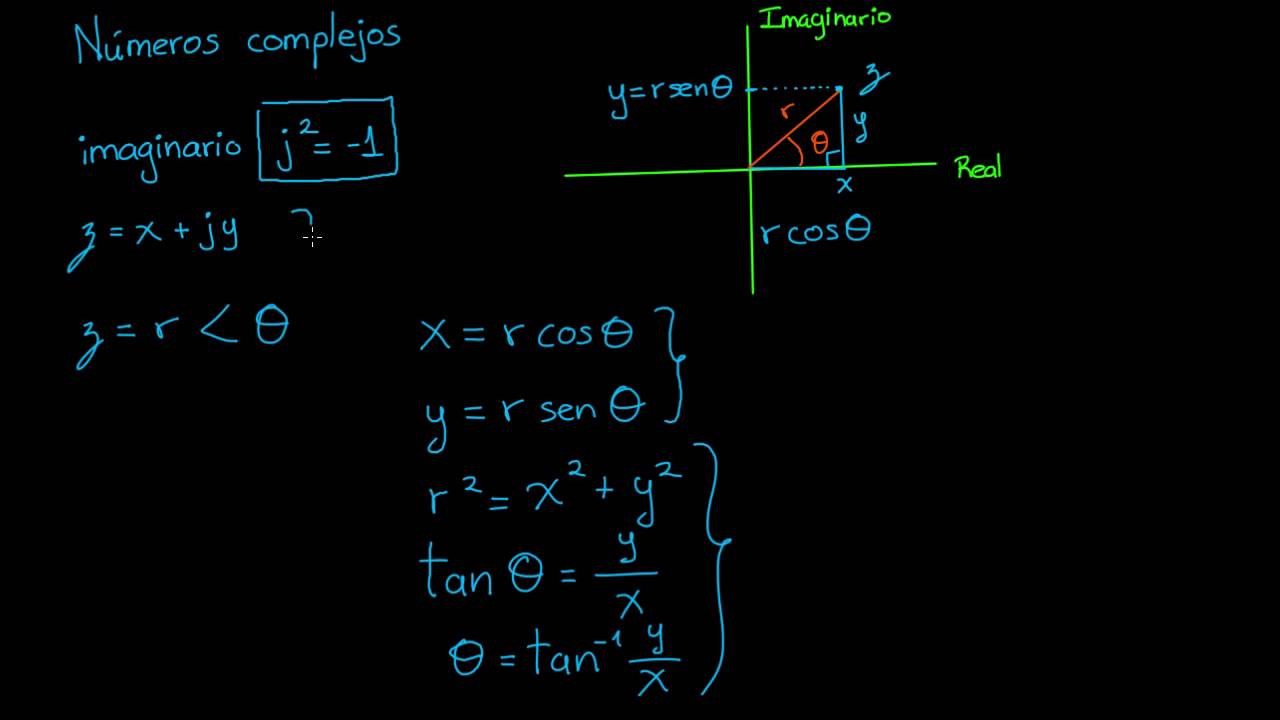 Números complejos
imaginario j² = -1
z = x + jy
z = r < θ
Imaginario
y = r sen θ
z
r
θ
y
x
Real
r cos θ
x = r cos θ
y = r sen θ
r² = x² + y²
tan θ = y/x
θ = tan⁻¹ y/x